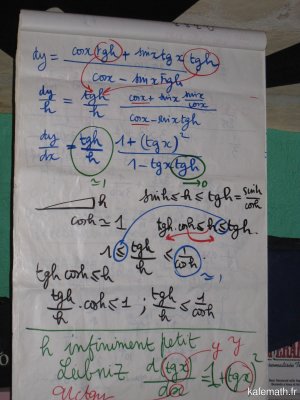 dy = (cosx tgh + sinx tgx tgh) / (cosx - sinx tgh)
dy/h = tgh/h (cosx + sinx sinx/cosx) / (cosx - sinx tgh)
dy/dx = tgh/h (1 + (tgx)²) / (1 - tgx tgh)
≃1 →0
sinh ≤ h ≤ tgh = sinh/cosh
h
cosh ≃ 1 tgh . cosh ≤ h ≤ tgh.
1 ≤ tgh/h ≤ 1/cosh ≃ 1
tgh cosh ≤ h
tgh/h . cosh ≤ 1 ; tgh/h ≤ 1/cosh
h infiniment petit
y y
Leibniz d(tgx)/dx = 1 + (tgx)²
kalemath.fr